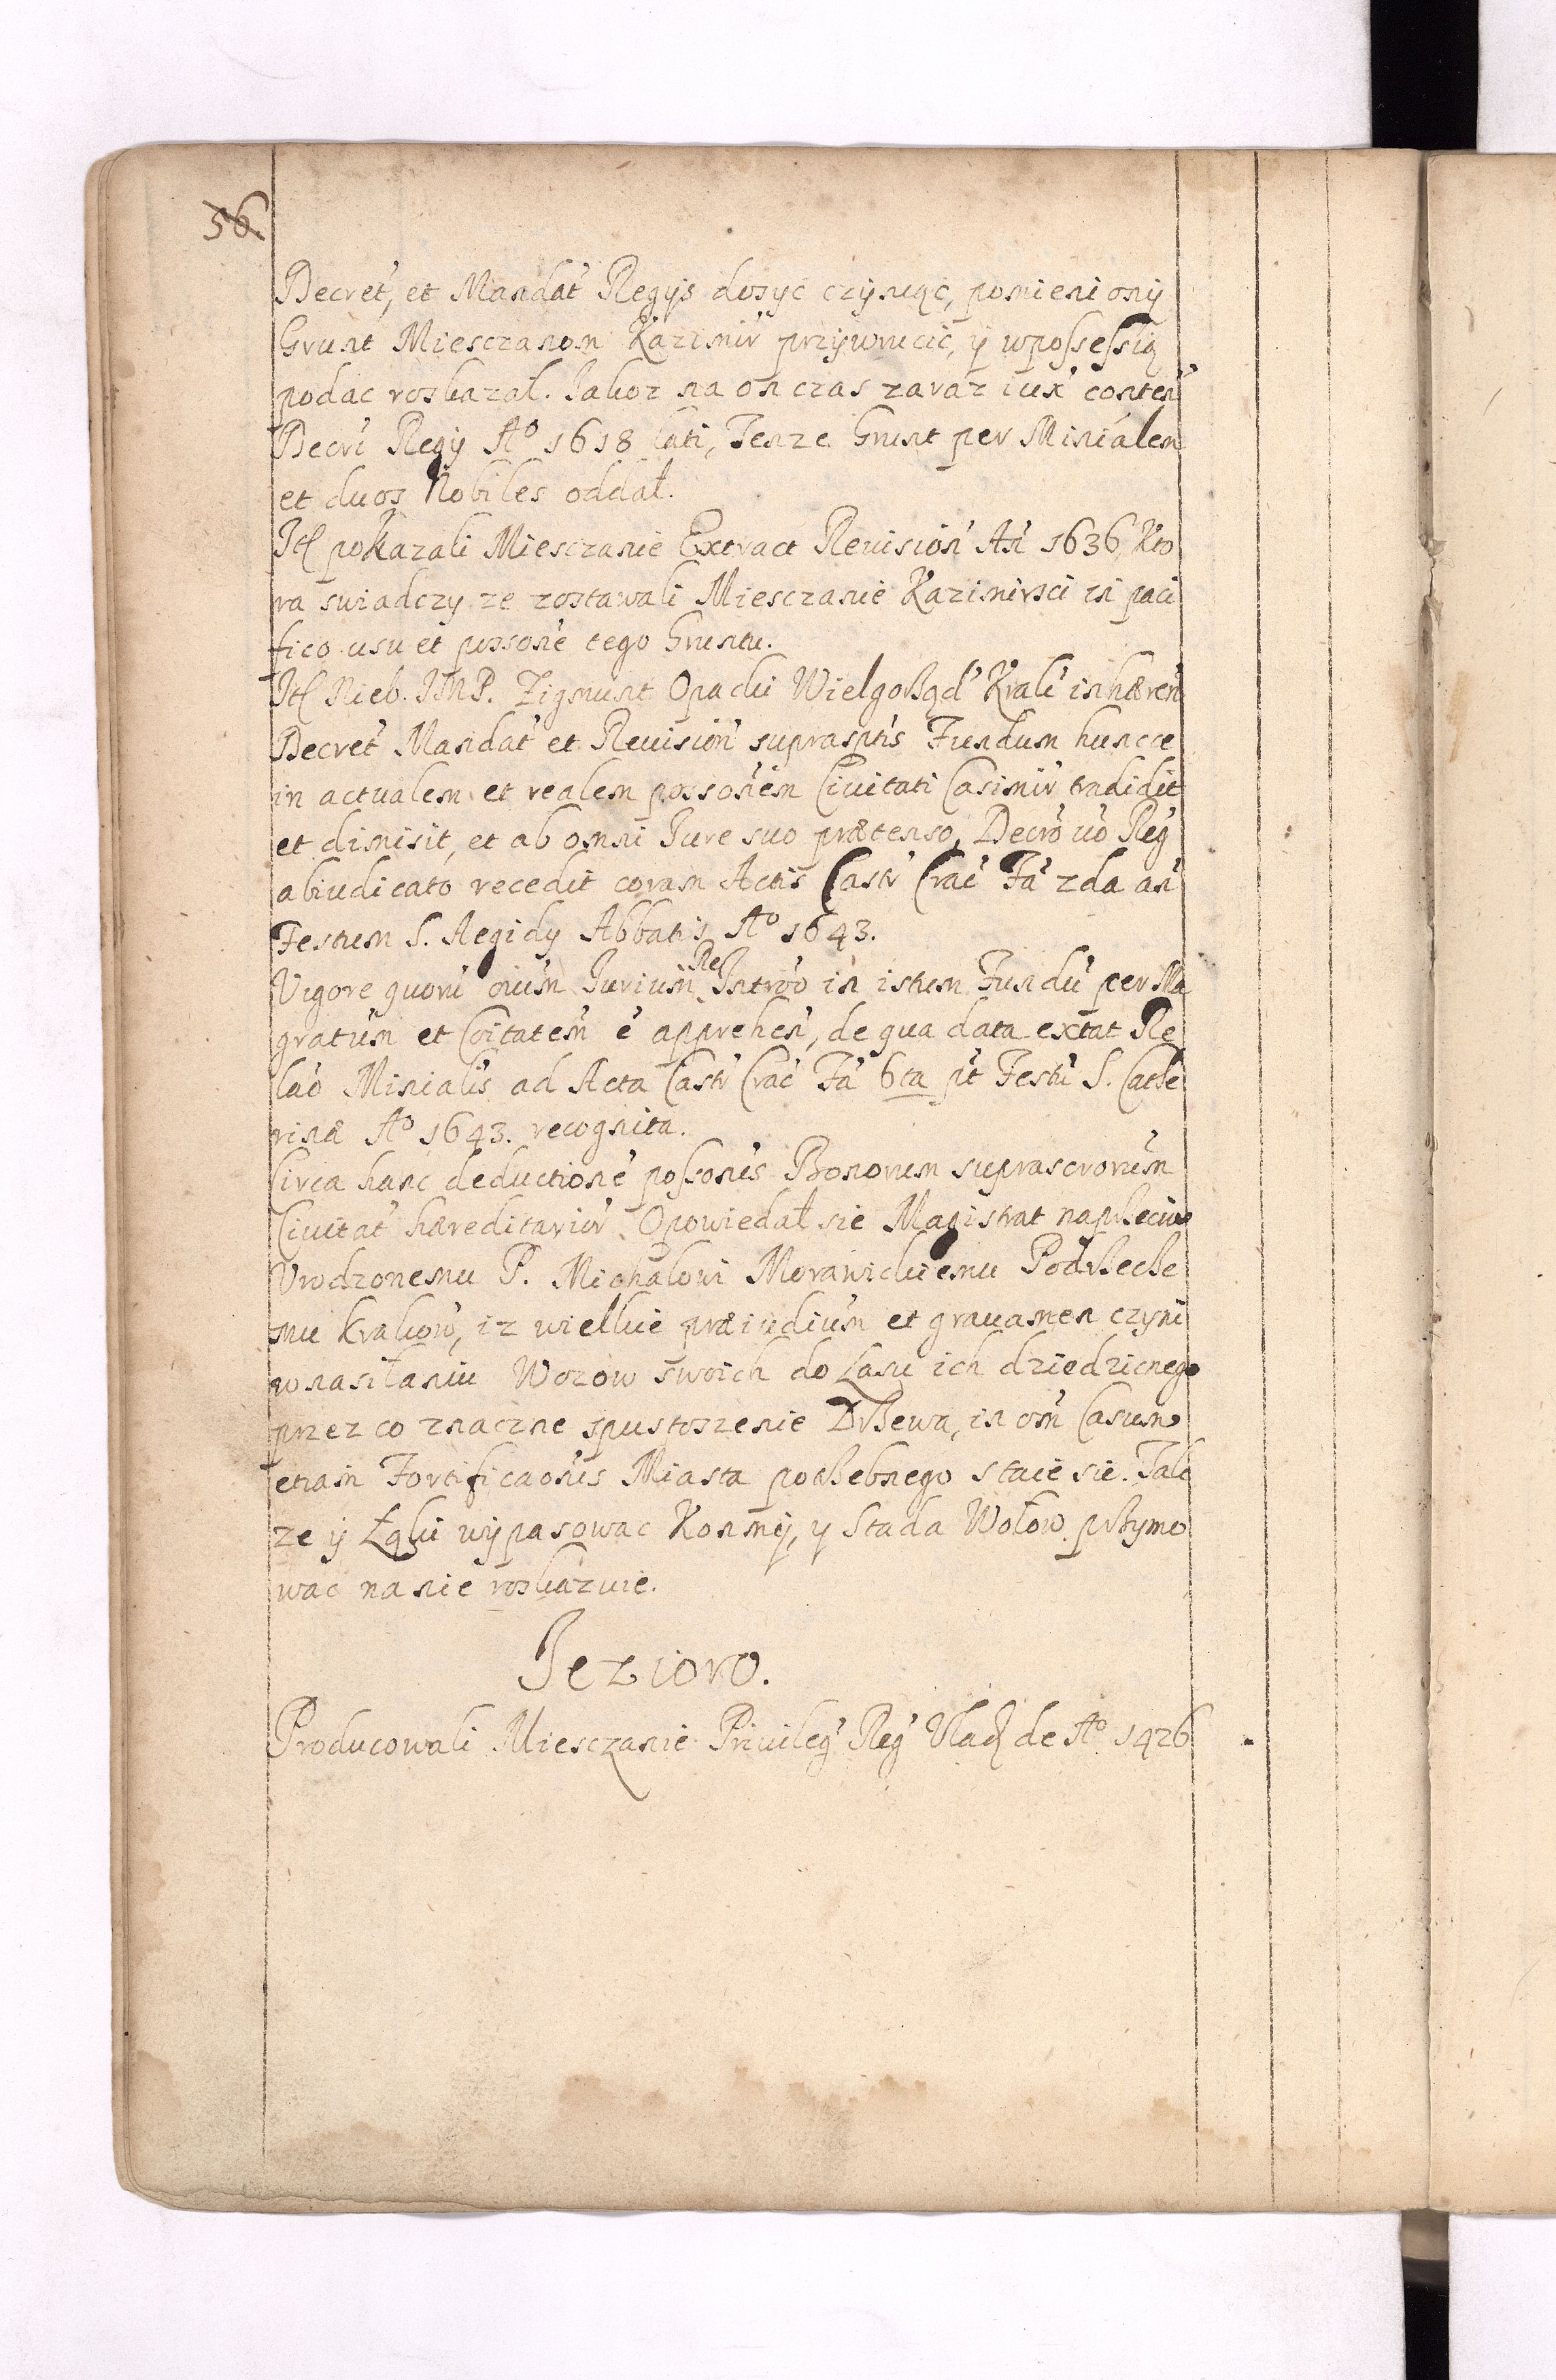 56.
Decret', et Mandat' Regijs dosyć czyniąc, pomieniony
Grunt Miesczanom Kazimir' przywrucić, y wpossessią
podac roskazał. Jakoz na on czas zaraz iux' conten'
Decri Regij Aº 1618 lati, Tenze Grunt per Minialem
et duos Nobiles oddał.
Itl pokazali Miesczanie Extract Reuision' An' 1636 Kto
ra swiadczy ze zostawali Miesczanie Kazimirsci in paci
fico usu et possone tego Gruntu.
Itl Nieb. JMP. Zigmunt Opacki Wielgorząd' Krak' inhæren'
Decret' Mandat' et Reuision' suprasptis Fundum huncce
in actualem et realem possonem Ciuitati Casimir' tradidit
et dimisit, et ab omni Jure suo prætenso, Decro uo Reg'
abiudicato recedit coram Actis Castr' Crac' Fa' 2da an'
Festum S. Aegidy Abbatis Aº 1643.
Vigore quoru' oium Jurium Re Introo in istum Fundu' per Ma
gratum et Coitatem e' apprehen', de qua data extat Re
lao Minialis ad Acta Castr' Crac' Fa' 6ta pt Festu' S. Cathe
rinæ Aº 1643. recognita.
Circa hanc deductione' possonis Bonorum suprascrorum
Ciuitat' hæreditarior' Opowiedał sie Magistrat naprzeciwo
Vrodzonemu P. Michałowi Morawickiemu Podrzecze
mu Krakow', iz wielkie præiudium et grauamen czyni
w nasiłaniu Wozow swoich do Lasu ich dziedzicnego
przez co znaczne spustoszenie Drzewa, in om' Casum
etiam Fortificaonis Miasta potrzebnego staie sie. Tak
ze y Łąki wypasowac Konmy, y Stada Wołow przymo
wac na nie roskazuie.
Jezioro.
Producowali Miesczanie Priuileg' Reg' Vlad de Aº 1426